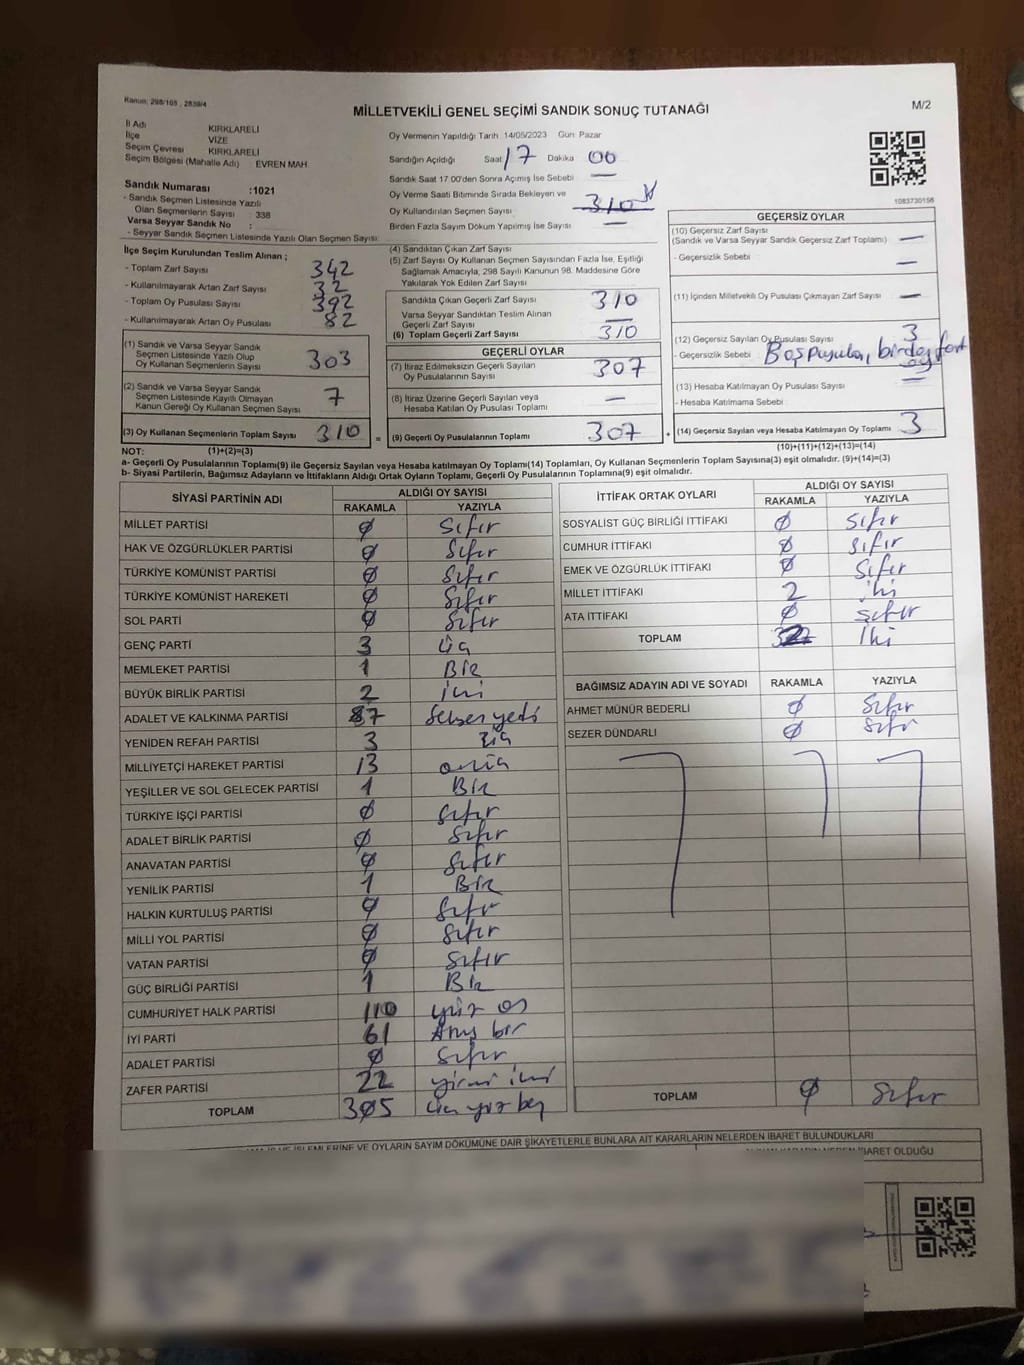 Kanun: 298/105 , 2839/4
MİLLETVEKİLİ GENEL SEÇİMİ SANDIK SONUÇ TUTANAĞI
M/2
İl Adı KIRKLARELİ
İlçe VİZE
Seçim Çevresi KIRKLARELİ
Seçim Bölgesi (Mahalle Adı) EVREN MAH
Sandık Numarası :1021
- Sandık Seçmen Listesinde Yazılı
Olan Seçmenlerin Sayısı : 338
Varsa Seyyar Sandık No :
- Seyyar Sandık Seçmen Listesinde Yazılı Olan Seçmen Sayısı:
Oy Vermenin Yapıldığı Tarih 14/05/2023 Gün Pazar
Sandığın Açıldığı Saat 17 Dakika 00
Sandık Saat 17.00'den Sonra Açımış İse Sebebi —
Oy Verme Saati Bitiminde Sırada Bekleyen ve
Oy Kullandırılan Seçmen Sayısı 310
Birden Fazla Sayım Döküm Yapılmış İse Sayısı —
1083730156
İlçe Seçim Kurulundan Teslim Alınan ;
- Toplam Zarf Sayısı 342
- Kullanılmayarak Artan Zarf Sayısı 32
- Toplam Oy Pusulası Sayısı 392
- Kullanılmayarak Artan Oy Pusulası 82
(1) Sandık ve Varsa Seyyar Sandık
Seçmen Listesinde Yazılı Olup
Oy Kullanan Seçmenlerin Sayısı 303
(2) Sandık ve Varsa Seyyar Sandık
Seçmen Listesinde Kayıtlı Olmayan
Kanun Gereği Oy Kullanan Seçmen Sayısı 7
(3) Oy Kullanan Seçmenlerin Toplam Sayısı 310 =
(4) Sandıktan Çıkan Zarf Sayısı
(5) Zarf Sayısı Oy Kullanan Seçmen Sayısından Fazla İse, Eşitliği
Sağlamak Amacıyla, 298 Sayılı Kanunun 98. Maddesine Göre
Yakılarak Yok Edilen Zarf Sayısı
Sandıkta Çıkan Geçerli Zarf Sayısı 310
Varsa Seyyar Sandıktan Teslim Alınan
Geçerli Zarf Sayısı —
(6) Toplam Geçerli Zarf Sayısı 310
GEÇERLİ OYLAR
(7) İtiraz Edilmeksizin Geçerli Sayılan
Oy Pusulalarının Sayısı 307
(8) İtiraz Üzerine Geçerli Sayılan veya
Hesaba Katılan Oy Pusulası Toplamı —
(9) Geçerli Oy Pusulalarının Toplamı 307 +
GEÇERSİZ OYLAR
(10) Geçersiz Zarf Sayısı
(Sandık ve Varsa Seyyar Sandık Geçersiz Zarf Toplamı) —
- Geçersizlik Sebebi —
(11) İçinden Milletvekili Oy Pusulası Çıkmayan Zarf Sayısı —
(12) Geçersiz Sayılan Oy Pusulası Sayısı 3
- Geçersizlik Sebebi Boş pusula,
(13) Hesaba Katılmayan Oy Pusulası Sayısı —
- Hesaba Katılmama Sebebi
(14) Geçersiz Sayılan veya Hesaba Katılmayan Oy Toplamı 3
NOT: (1)+(2)=(3) (10)+(11)+(12)+(13)=(14)
a- Geçerli Oy Pusulalarının Toplamı(9) ile Geçersiz Sayılan veya Hesaba katılmayan Oy Toplamı(14) Toplamları, Oy Kullanan Seçmenlerin Toplam Sayısına(3) eşit olmalıdır. (9)+(14)=(3)
b- Siyasi Partilerin, Bağımsız Adayların ve İttifakların Aldığı Oyların Toplamı, Geçerli Oy Pusulalarının Toplamına(9) eşit olmalıdır.
SİYASİ PARTİNİN ADI ALDIĞI OY SAYISI
RAKAMLA YAZIYLA
MİLLET PARTİSİ 0 Sıfır
HAK VE ÖZGÜRLÜKLER PARTİSİ 0 Sıfır
TÜRKİYE KOMÜNİST PARTİSİ 0 Sıfır
TÜRKİYE KOMÜNİST HAREKETİ 0 Sıfır
SOL PARTİ 0 Sıfır
GENÇ PARTİ 3 üç
MEMLEKET PARTİSİ 1 Bir
BÜYÜK BİRLİK PARTİSİ 2 iki
ADALET VE KALKINMA PARTİSİ 87 Seksen yedi
YENİDEN REFAH PARTİSİ 3 üç
MİLLİYETÇİ HAREKET PARTİSİ 13 onüç
YEŞİLLER VE SOL GELECEK PARTİSİ 1 Bir
TÜRKİYE İŞÇİ PARTİSİ 0 Sıfır
ADALET BİRLİK PARTİSİ 0 Sıfır
ANAVATAN PARTİSİ 0 Sıfır
YENİLİK PARTİSİ 1 Bir
HALKIN KURTULUŞ PARTİSİ 0 Sıfır
MİLLİ YOL PARTİSİ 0 Sıfır
VATAN PARTİSİ 0 Sıfır
GÜÇ BİRLİĞİ PARTİSİ 1 Bir
CUMHURİYET HALK PARTİSİ 110 yüz on
İYİ PARTİ 61 Atmış bir
ADALET PARTİSİ 0 Sıfır
ZAFER PARTİSİ 22 yirmi iki
TOPLAM 305 üç yüz beş
İTTİFAK ORTAK OYLARI ALDIĞI OY SAYISI
RAKAMLA YAZIYLA
SOSYALİST GÜÇ BİRLİĞİ İTTİFAKI 0 Sıfır
CUMHUR İTTİFAKI 0 Sıfır
EMEK VE ÖZGÜRLÜK İTTİFAKI 0 Sıfır
MİLLET İTTİFAKI 2 iki
ATA İTTİFAKI 0 Sıfır
TOPLAM 2 iki
BAĞIMSIZ ADAYIN ADI VE SOYADI RAKAMLA YAZIYLA
AHMET MÜNÜR BEDERLİ 0 Sıfır
SEZER DÜNDARLI 0 Sıfır
TOPLAM 0 Sıfır
İŞLEMLERİNE VE OYLARIN SAYIM DÖKÜMÜNE DAİR ŞİKAYETLERLE BUNLARA AİT KARARLARIN NELERDEN İBARET BULUNDUKLARI
KARARIN NEDEN İBARET OLDUĞU